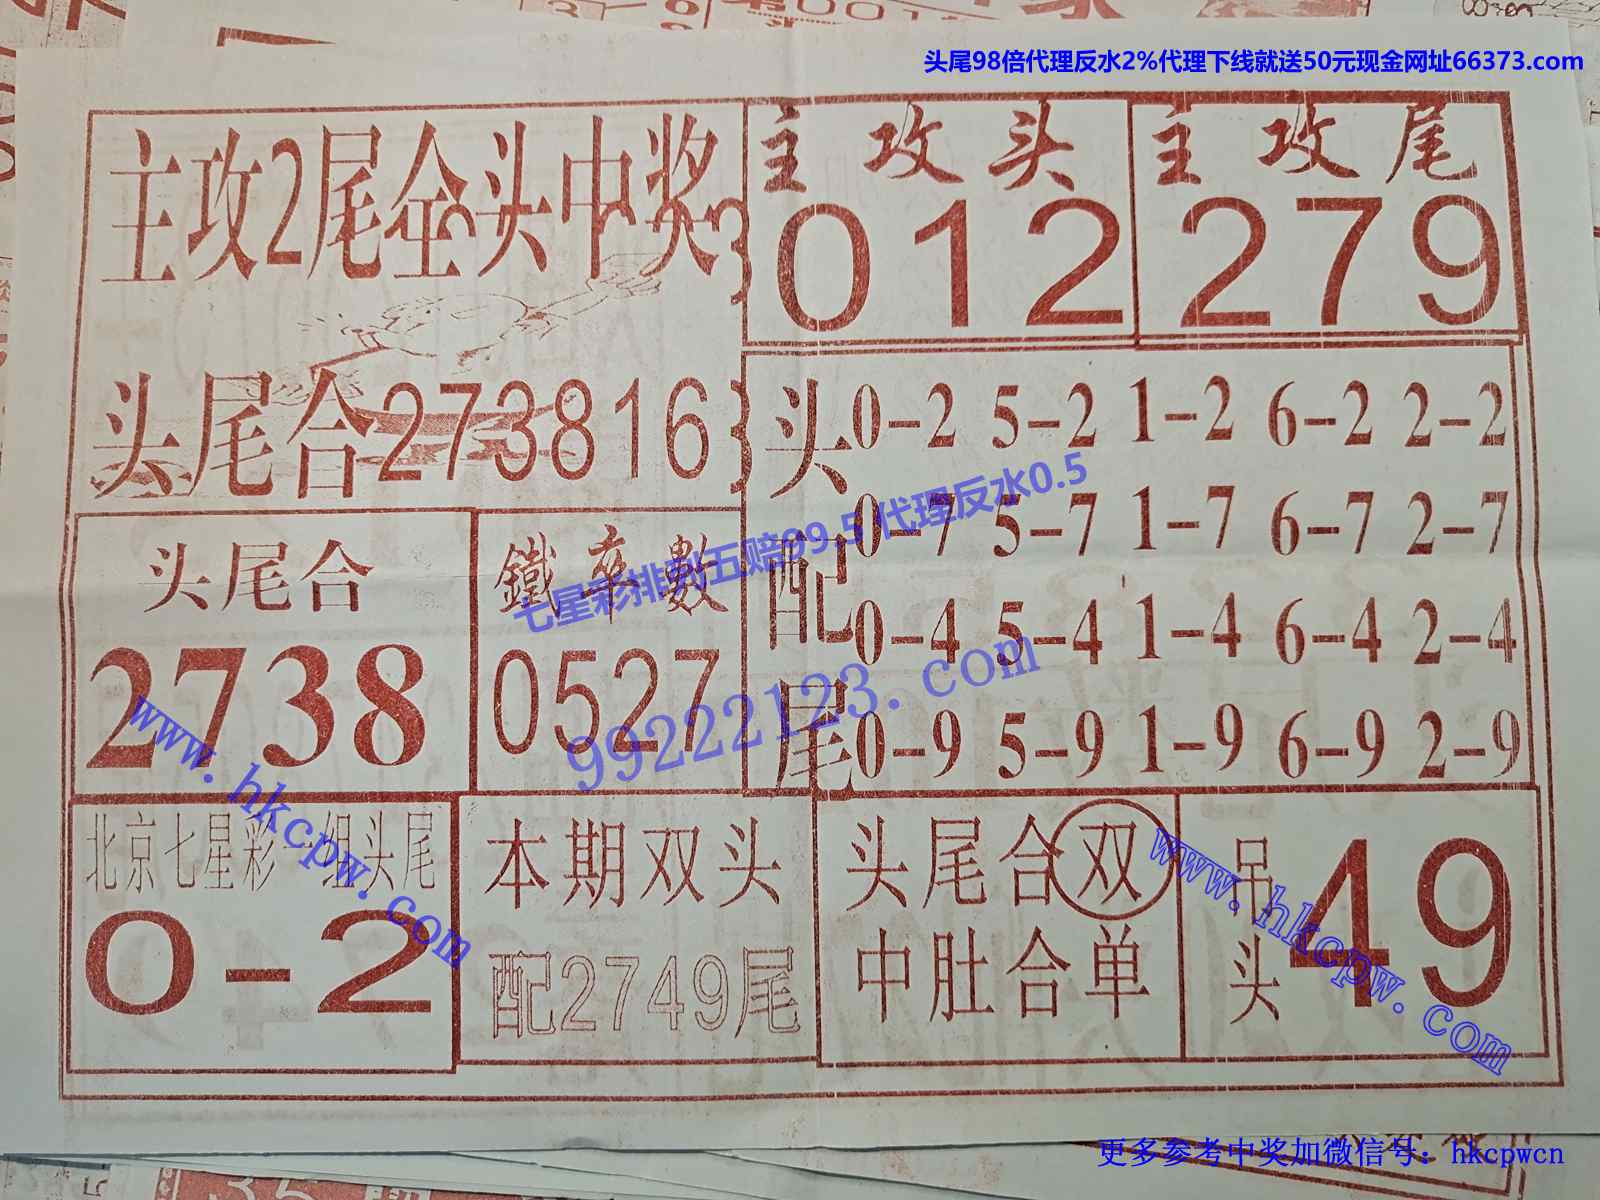 头尾98倍代理反水2%代理下线就送50元现金网址66373.com
主攻2尾全头中奖
主攻头
012
主攻尾
279
头尾合273816
头配尾
0-2 5-2 1-2 6-2 2-2
0-7 5-7 1-7 6-7 2-7
0-4 5-4 1-4 6-4 2-4
0-9 5-9 1-9 6-9 2-9
头尾合
2738
鐵率數
0527
七星彩排列五赔99.5 代理反水0.5
99222123.com
www.hkcpw.com
北京七星彩一组头尾
0-2
本期双头
配2749尾
头尾合双
中肚合单
吊头
49
www.hkcpw.com
更多参考中奖加微信号：hkcpwcn